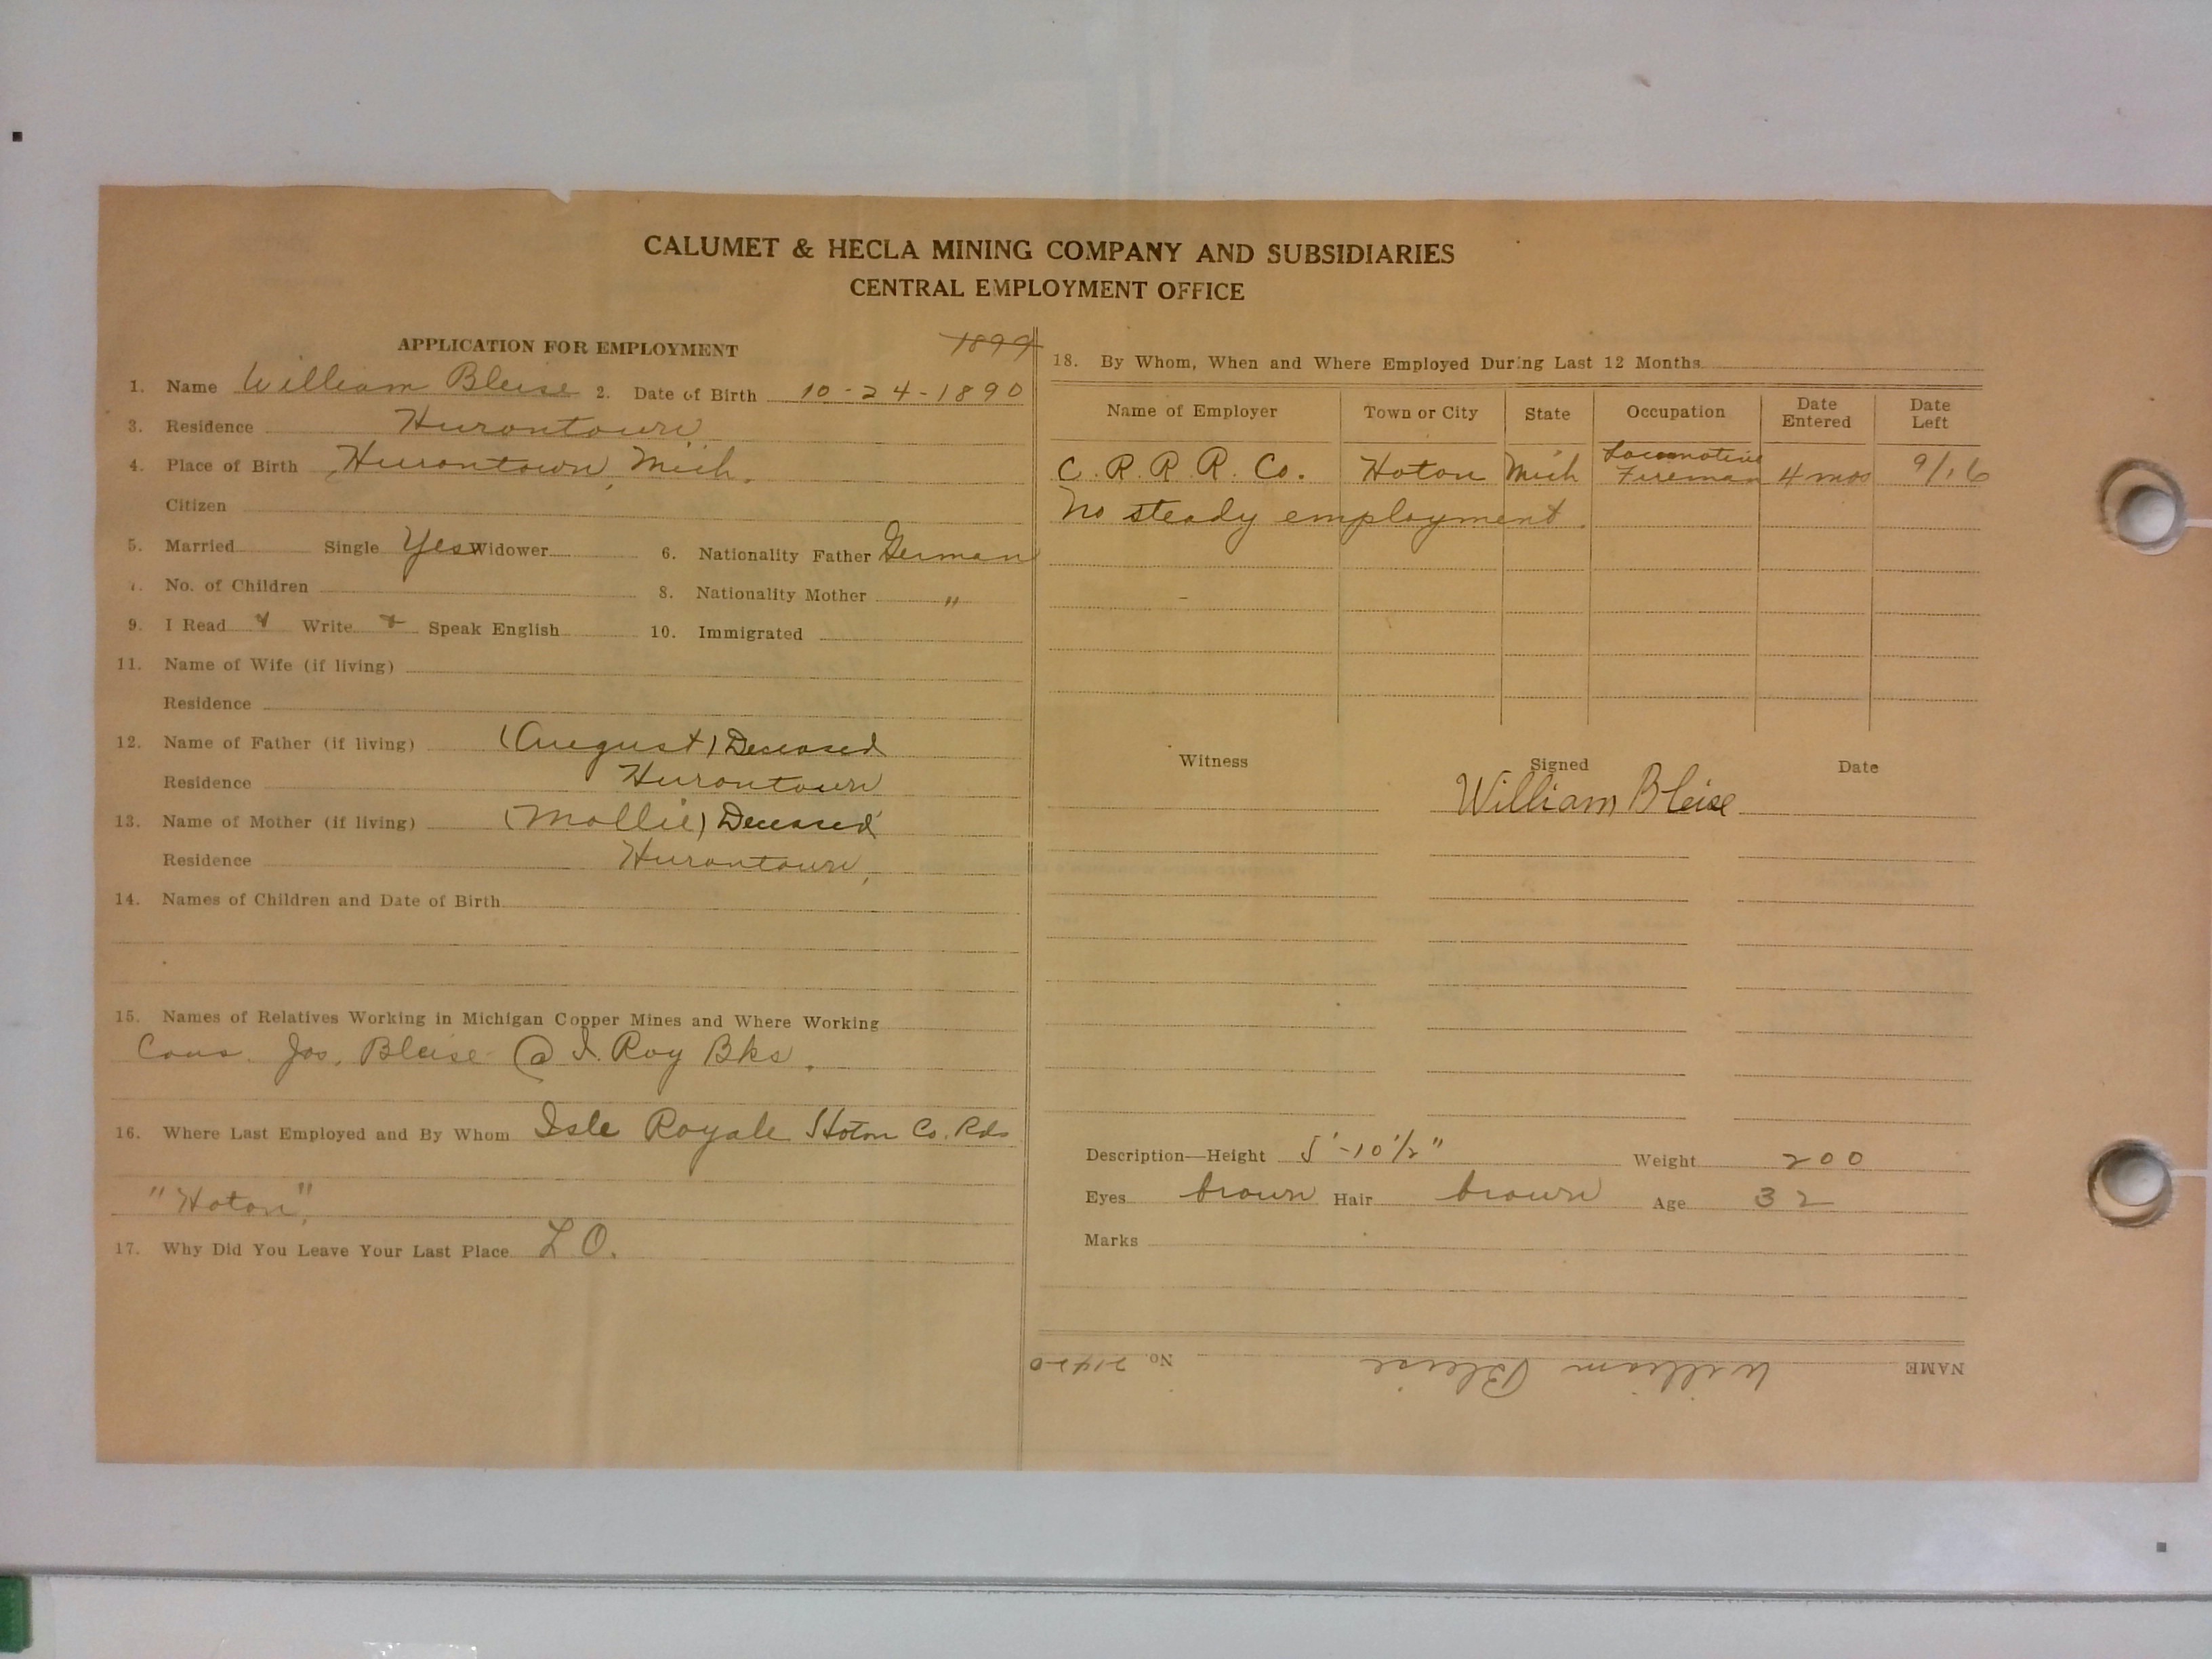 CALUMET & HECLA MINING COMPANY AND SUBSIDIARIES
CENTRAL EMPLOYMENT OFFICE
APPLICATION FOR EMPLOYMENT 1899
1. Name William Bleise 2. Date of Birth 10-24-1890
3. Residence Hurontown
4. Place of Birth Hurontown, Mich.
Citizen
5. Married Single Yes Widower 6. Nationality Father German
7. No. of Children 8. Nationality Mother "
9. I Read Write Speak English 10. Immigrated
11. Name of Wife (if living)
Residence
12. Name of Father (if living) (August) Deceased
Residence Hurontown
13. Name of Mother (if living) (Mollie) Deceased
Residence Hurontown,
14. Names of Children and Date of Birth
15. Names of Relatives Working in Michigan Copper Mines and Where Working
Cous. Jos. Bleise @ I. Roy Bks.
16. Where Last Employed and By Whom Isle Royale Hoton Co. Rds
"Hoton",
17. Why Did You Leave Your Last Place L.O.
18. By Whom, When and Where Employed During Last 12 Months
Name of Employer Town or City State Occupation Date Entered Date Left
C.R.R.R. Co. Hoton Mich Locomotive Fireman 4 mos 9/16
No steady employment.
Witness Signed Date
William Bleise
Description—Height 5'-10 1/2" Weight 200
Eyes brown Hair brown Age 32
Marks
NAME William Bleise No. 21420